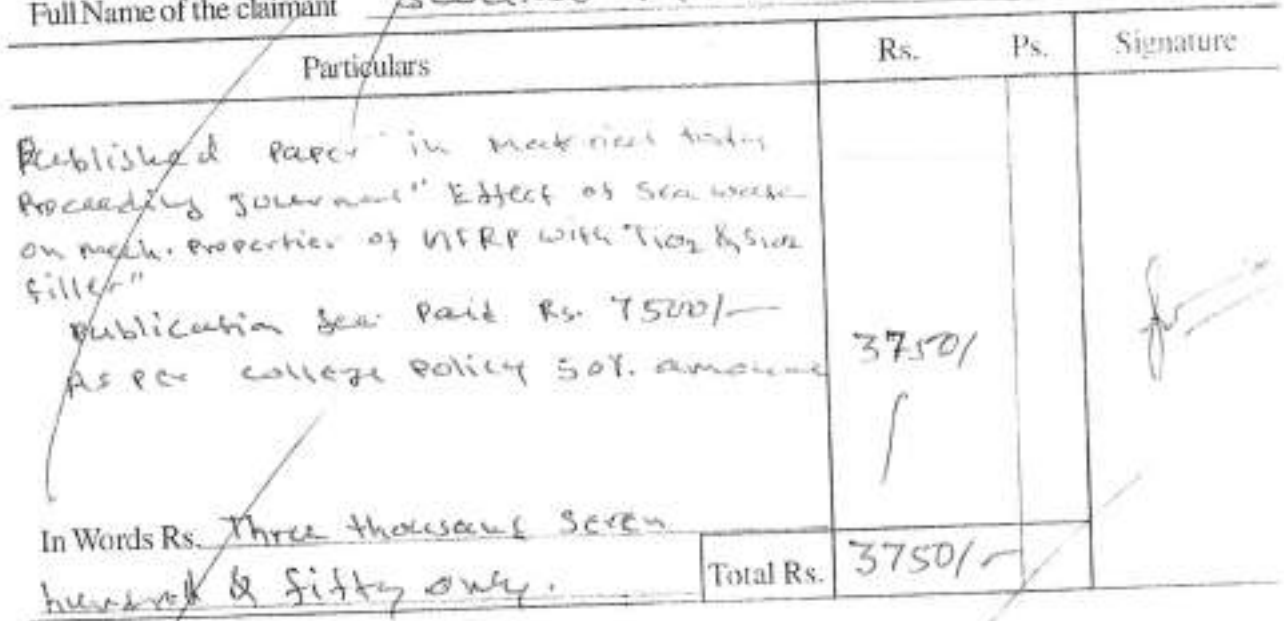 Full Name of the claimant
Particulars Rs. Ps. Signature
Published paper in Material today
Proceeding Journal " Effect of Sea water
on mech. properties of NFRP with Tio2 & Sio2
filler"
publication fee Paid Rs. 7500/-
As per college policy 50%. amount 3750/
In Words Rs. Three thousand Seven
hundred & fifty only. Total Rs. 3750/-